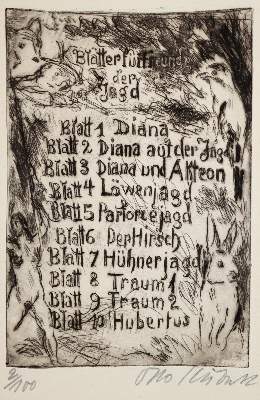 der
Jagd
Blatt 1 Diana
Blatt 2 Diana auf der Jagd
Blatt 3 Diana und Akteon
Blatt 4 Löwenjagd
Blatt 5 Parforcejagd
Blatt 6 Der Hirsch
Blatt 7 Hühnerjagd
Blatt 8 Traum 1
Blatt 9 Traum 2
Blatt 10 Hubertus
/100
Otto